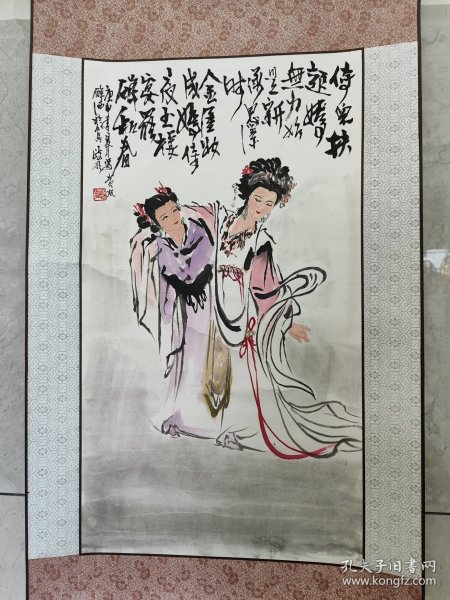 侍兒扶
起嬌
無力始
是新
承恩澤
時
金屋妝
成嬌侍
夜玉樓
宴罷
醉和春
孔夫子旧书网
www.kongfz.com